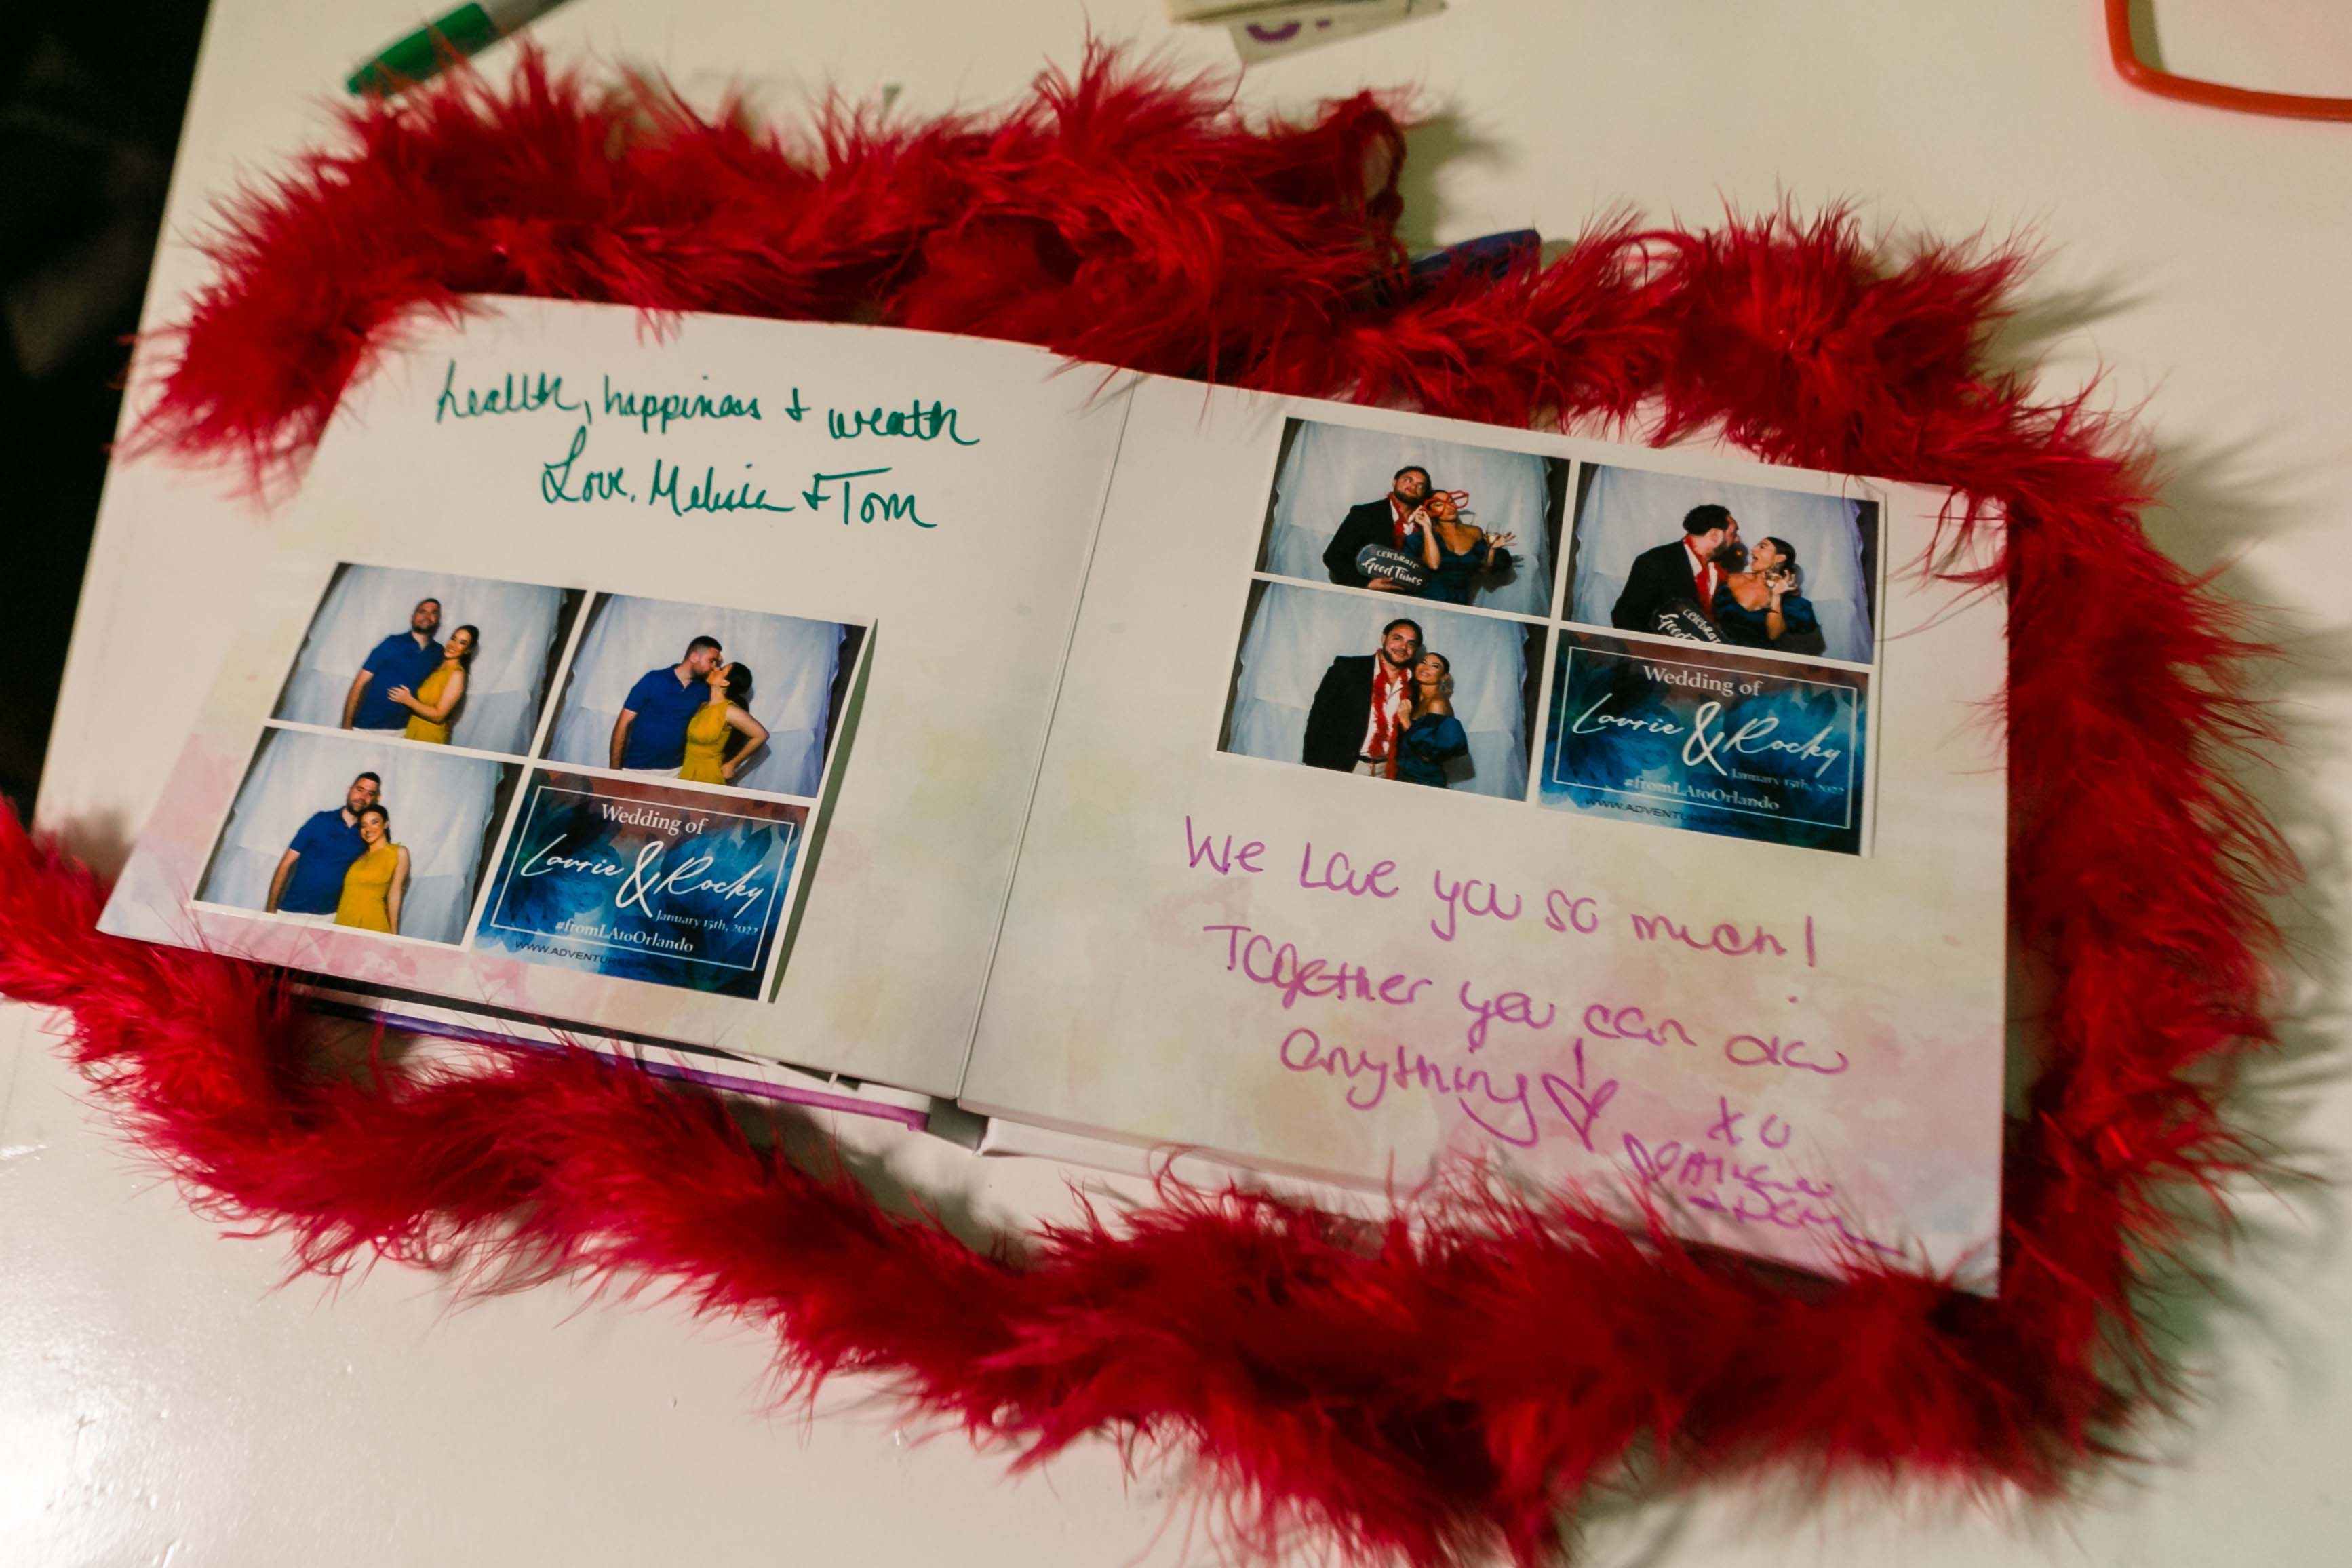 health, happiness + wealth
Love, Melissa + Tom
Wedding of
Laurie & Rocky
January 15th, 2022
#fromLAtoOrlando
WWW.ADVENTUR
CELEBRATE
Good Times
CELEBRAT
Good
Wedding of
Laurie & Rocky
January 15th, 2022
#fromLAtoOrlando
WWW.ADVENTUR
We Love you so much!
Together you can do
anything!
XO